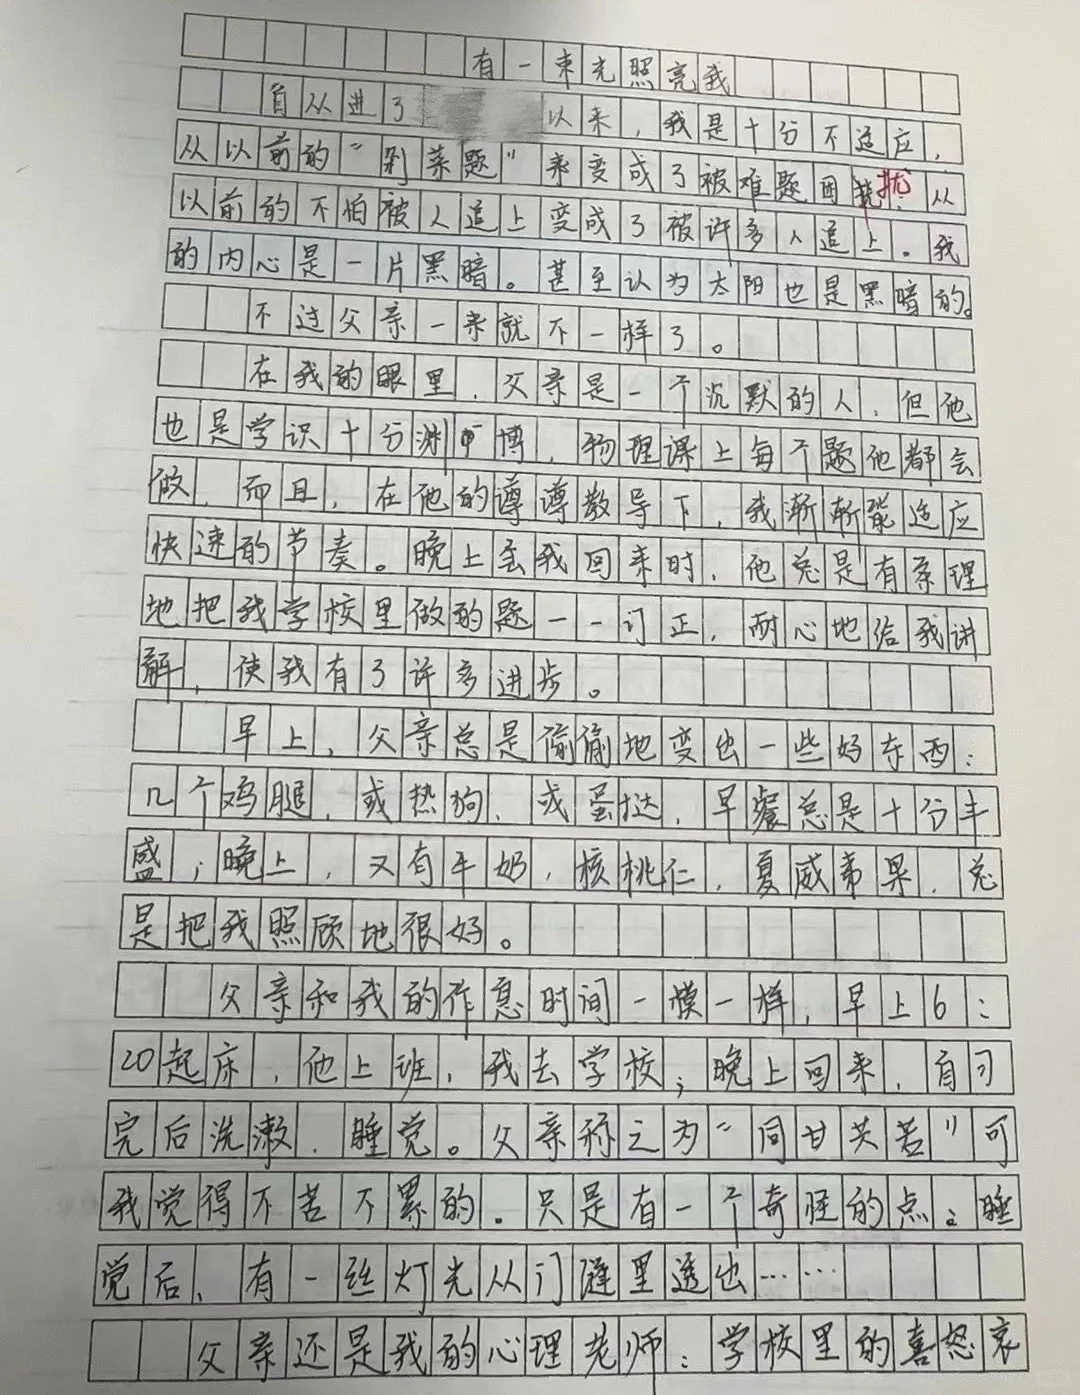 有一束光照亮我
自从进了以来，我是十分不适应，
从以前的“剁菜题”来变成了被难题困扰扰。从
以前的不怕被人追上变成了被许多人追上。我
的内心是一片黑暗。甚至认为太阳也是黑暗的。
不过父亲一来就不一样了。
在我的眼里，父亲是一个沉默的人，但他
也是学识十分渊博，物理课上每个题他都会
做，而且，在他的谆谆教导下，我渐渐能适应
快速的节奏。晚上至我回来时，他总是有条理
地把我学校里做的题一一订正，耐心地给我讲
解，使我有了许多进步。
早上，父亲总是偷偷地变出一些好东西：
几个鸡腿，或热狗，或蛋挞，早餐总是十分丰
盛；晚上，又有牛奶，核桃仁，夏威夷果，总
是把我照顾地很好。
父亲和我的作息时间一模一样，早上6：
20起床，他上班，我去学校；晚上回来，自习
完后洗漱，睡觉。父亲称之为“同甘共苦”可
我觉得不苦不累的。只是有一个奇怪的点。睡
觉后，有一丝灯光从门缝里透出……
父亲还是我的心理老师：学校里的喜怒哀